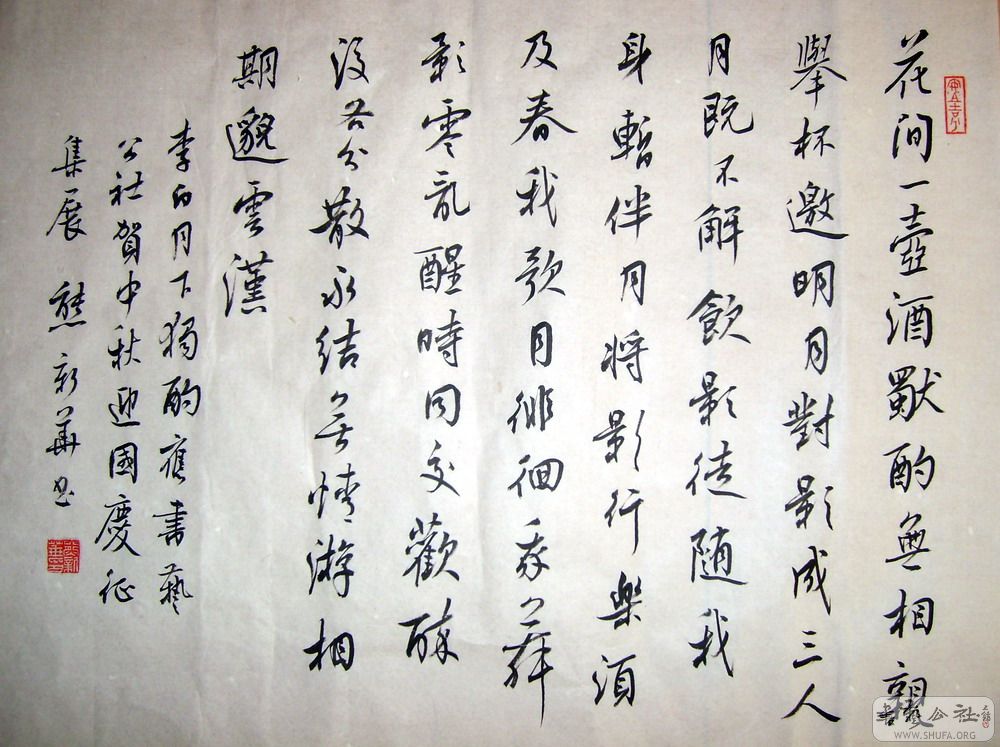 花間一壺酒獨酌無相親
舉杯邀明月對影成三人
月既不解飲影徒隨我
身暫伴月將影行樂須
及春我歌月徘徊我舞
影零亂醒時同交歡醉
後各分散永結無情游相
期邈雲漢
李白月下獨酌應書藝
公社賀中秋迎國慶征
集展 熊新華書
書藝公社
WWW.SHUFA.ORG